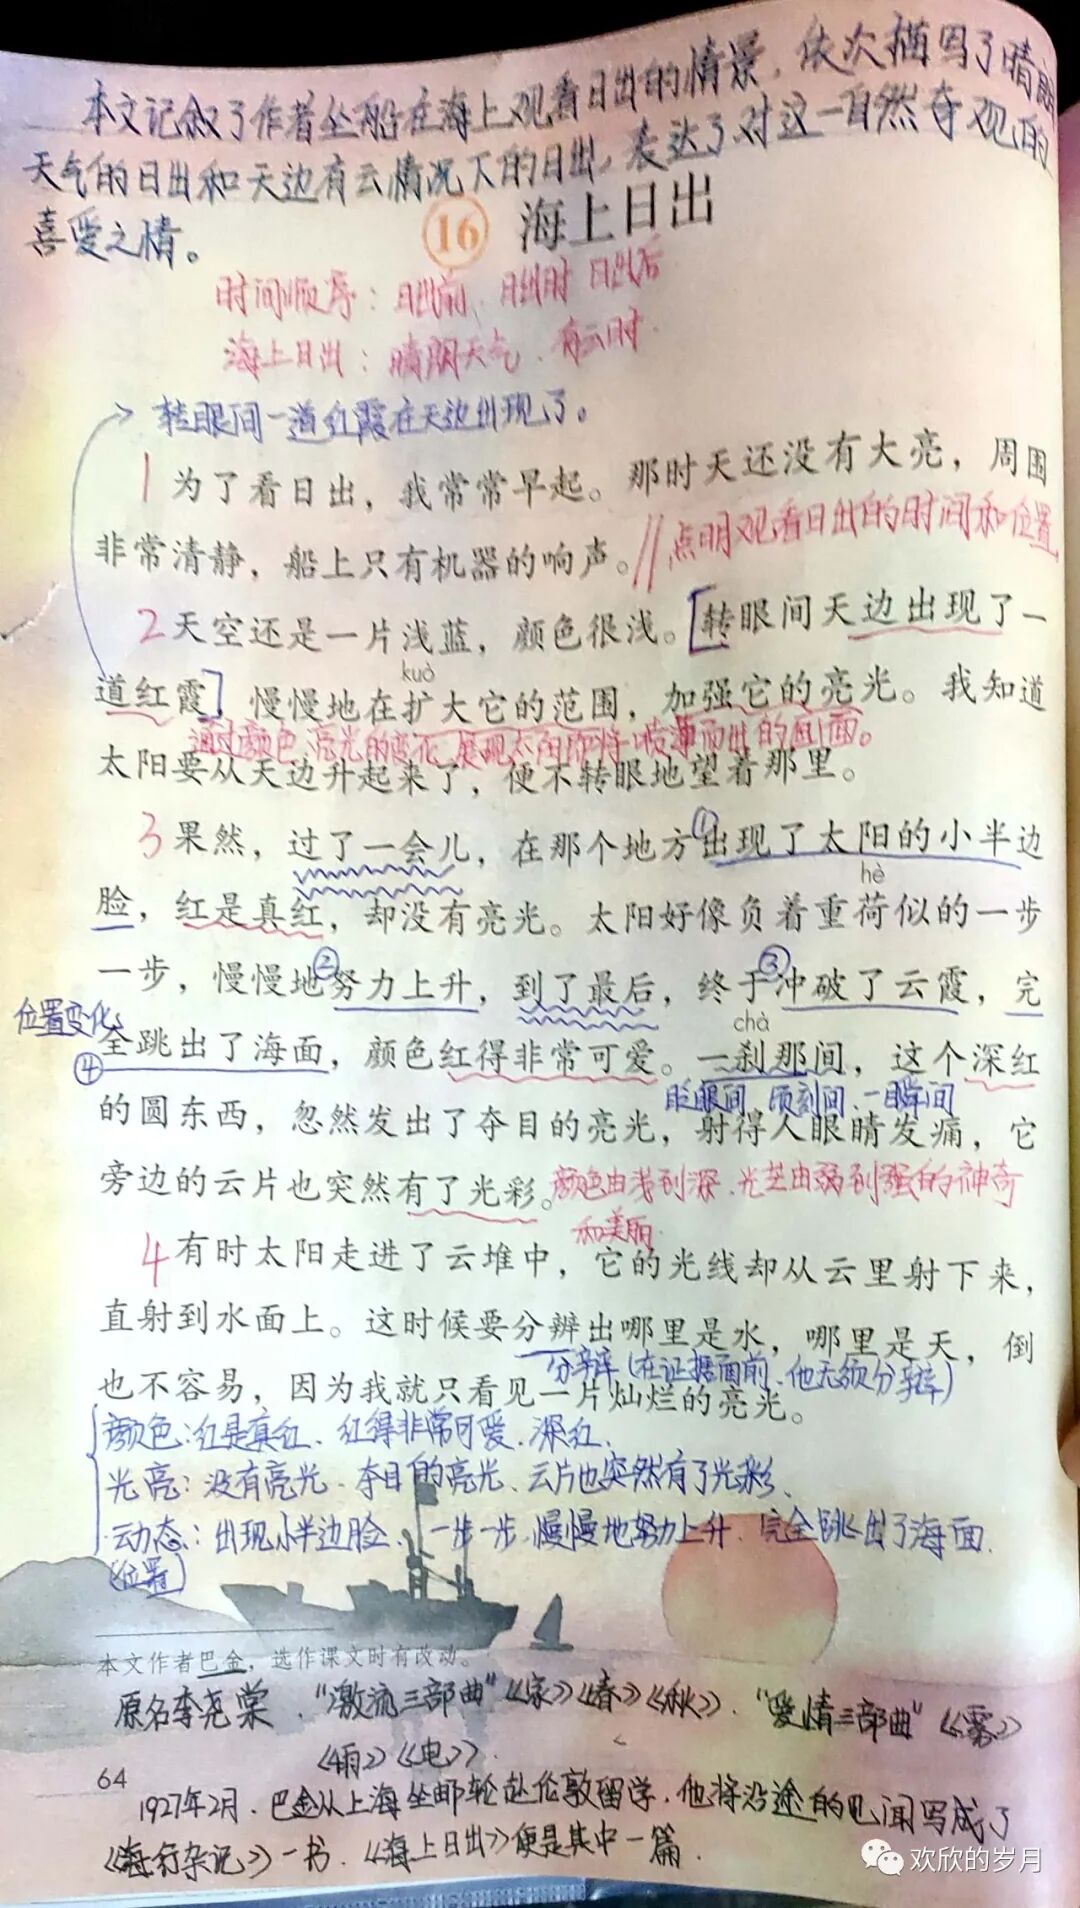 本文记叙了作者坐船在海上观看日出的情景，依次描写了晴朗
天气的日出和天边有云情况下的日出，表达了对这一自然奇观的
喜爱之情。
16 海上日出
时间顺序：日出前、日出时 日出后
海上日出：晴朗天气、有云时.
转眼间一道红霞在天边出现了。
1 为了看日出，我常常早起。那时天还没有大亮，周围
非常清静，船上只有机器的响声。
点明观看日出的时间和位置
2 天空还是一片浅蓝，颜色很浅。转眼间天边出现了一
kuò
道红霞，慢慢地在扩大它的范围，加强它的亮光。我知道
通过颜色、亮光的变化，展现太阳即将喷薄而出的画面。
太阳要从天边升起来了，便不转眼地望着那里。
①
3 果然，过了一会儿，在那个地方出现了太阳的小半边
hè
脸，红是真红，却没有亮光。太阳好像负着重荷似的一步
② ③
一步，慢慢地努力上升，到了最后，终于冲破了云霞，完
位置变化
chà
④ 全跳出了海面，颜色红得非常可爱。一刹那间，这个深红
眨眼间、顷刻间、一瞬间
的圆东西，忽然发出了夺目的亮光，射得人眼睛发痛，它
旁边的云片也突然有了光彩。
颜色由浅到深、光芒由弱到强的神奇
和美丽.
4 有时太阳走进了云堆中，它的光线却从云里射下来，
直射到水面上。这时候要分辨出哪里是水，哪里是天，倒
分辩（在证据面前、他无须分辩）
也不容易，因为我就只看见一片灿烂的亮光。
颜色：红是真红、红得非常可爱、深红.
光亮：没有亮光、夺目的亮光、云片也突然有了光彩、
动态：出现小半边脸、一步一步、慢慢地努力上升、完全跳出了海面.
（位置）
本文作者巴金，选作课文时有改动。
原名李尧棠、“激流三部曲”《家》《春》《秋》.“爱情三部曲”《雾》
《雨》《电》.
64
1927年2月、巴金从上海坐邮轮赴伦敦留学、他将沿途的见闻写成了
《海行杂记》一书.《海上日出》便是其中一篇.
欢欣的岁月